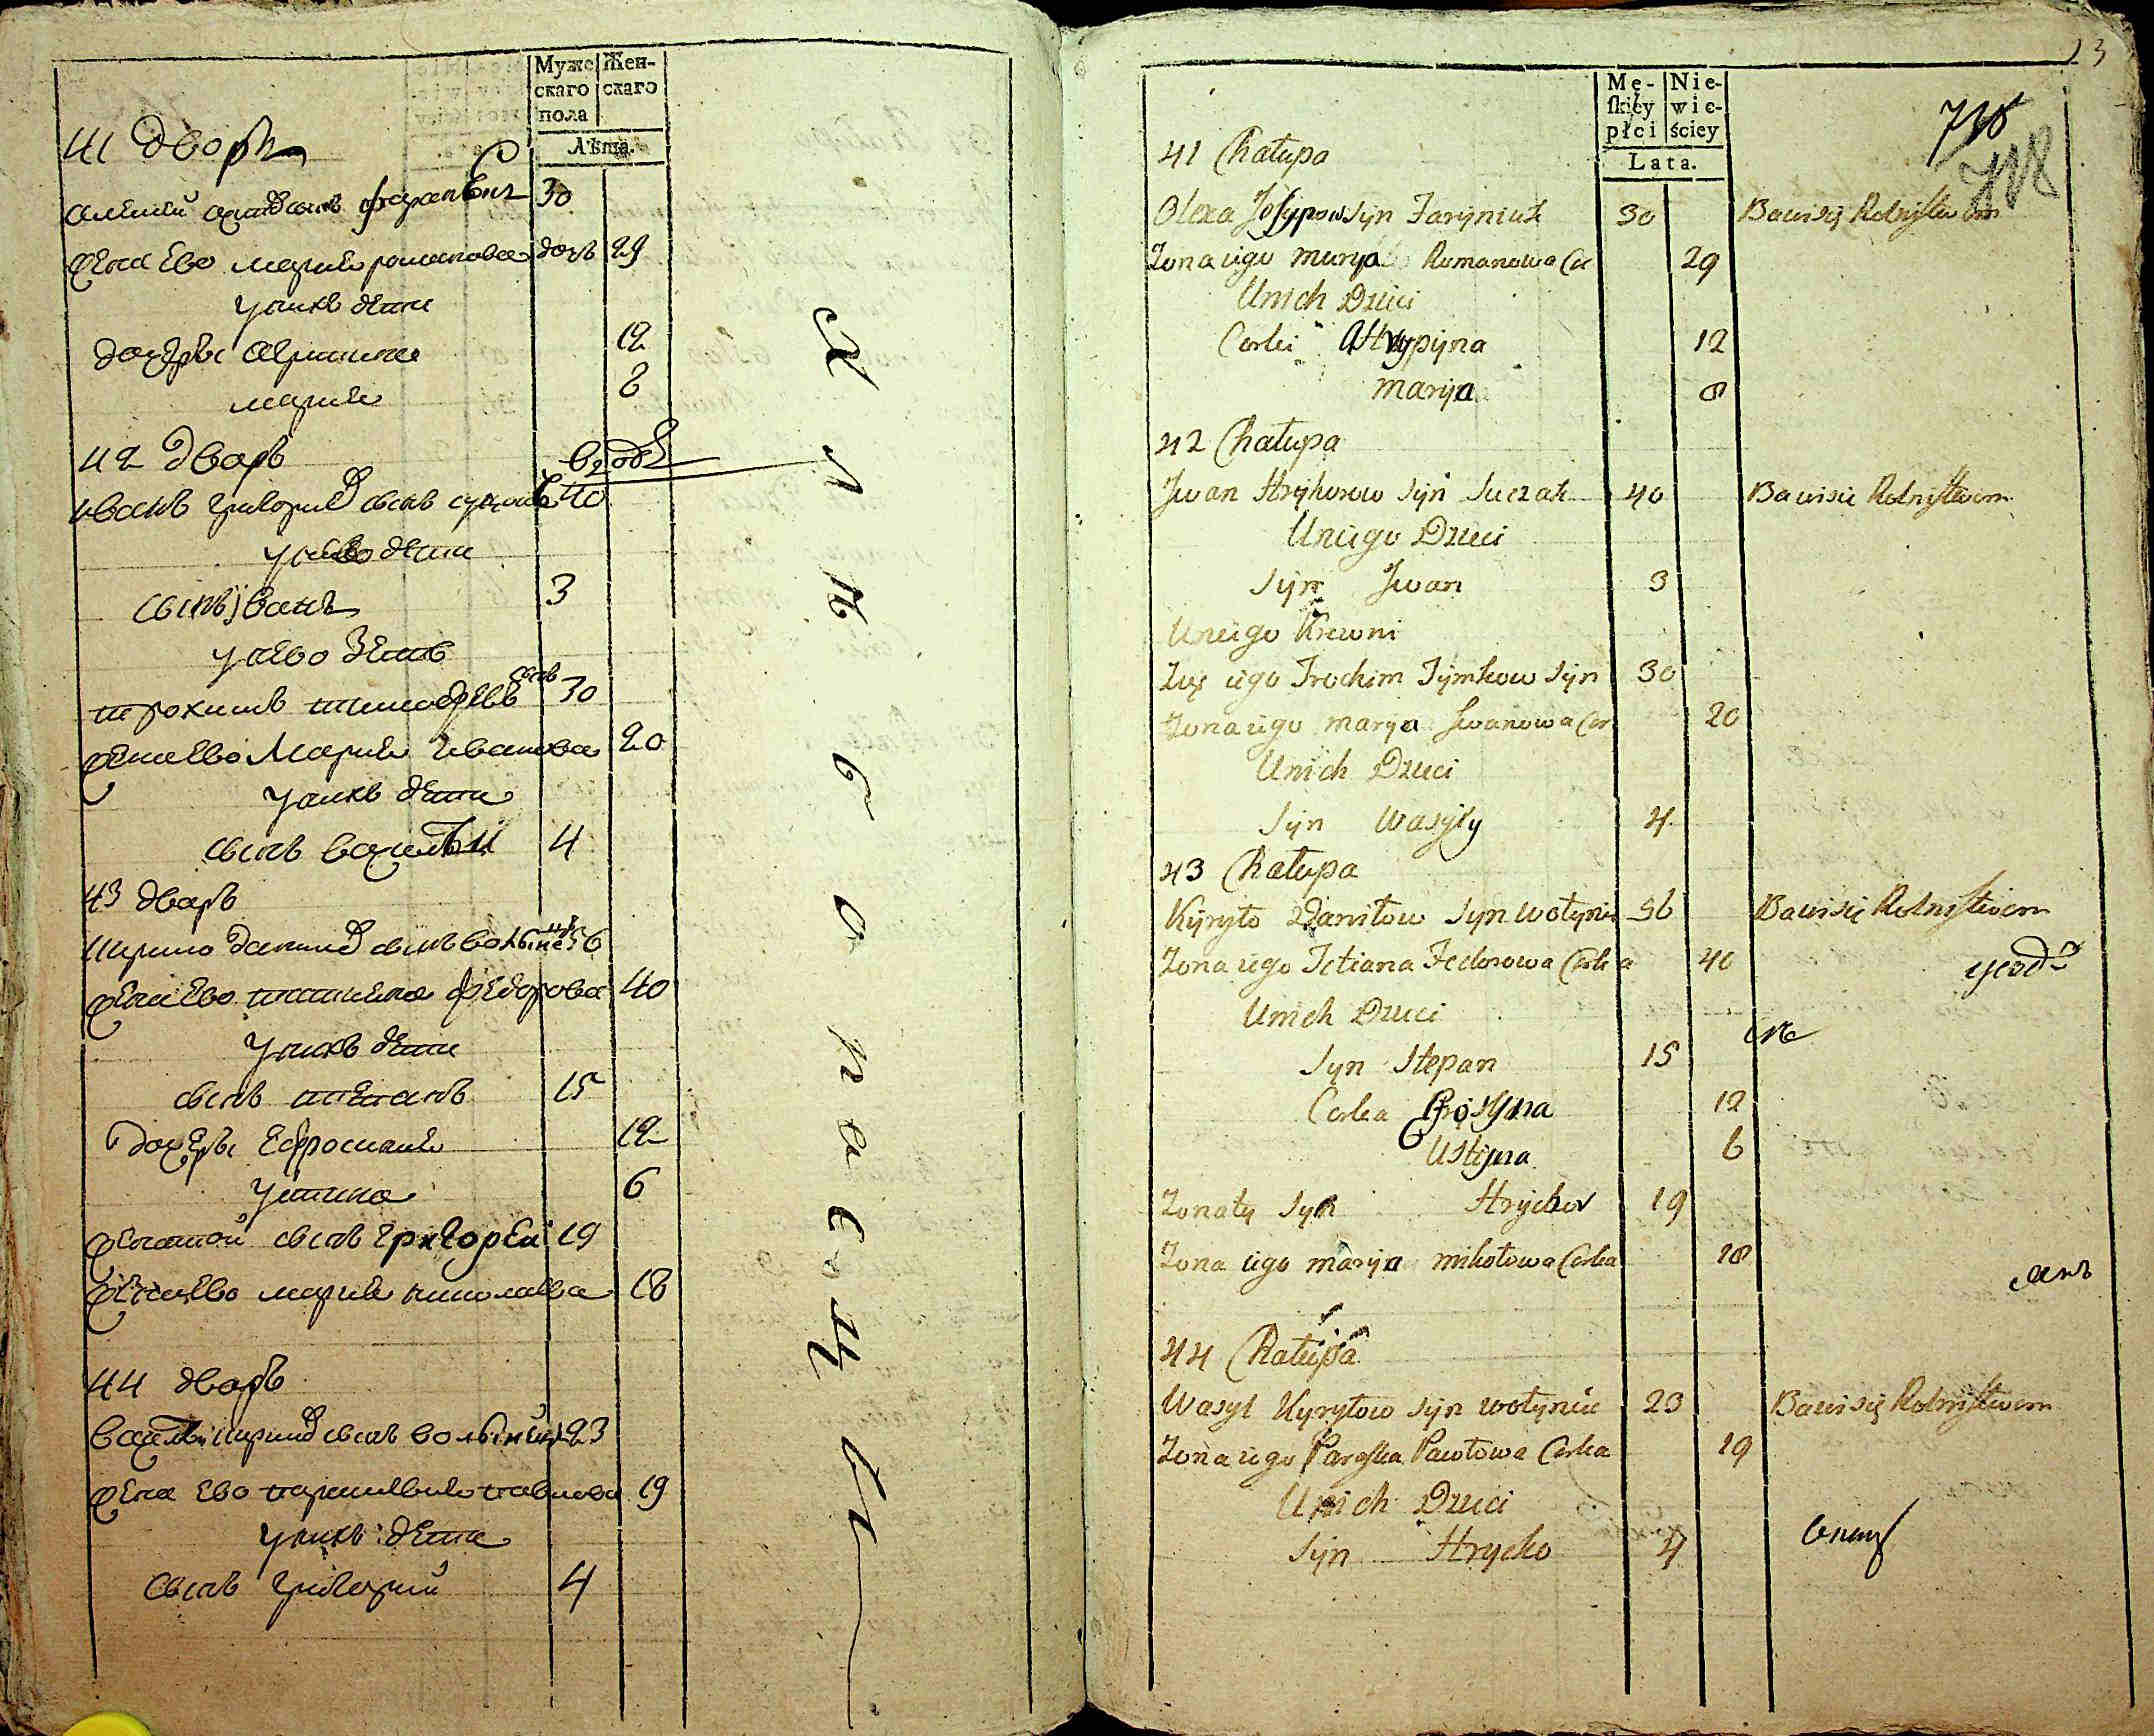 Муже
скаго
пола
Жен-
скаго
Лѣта.
41 дворъ
30
жена Ево мария романова дочь 29
у нихъ дети
дочеры Агрипина 12
мария 8
42 дворъ
иванъ григориев сынъ 40
у нево дети
сынъ иванъ 3
у нево зеть
трохимъ тимофеевъ сынъ 30
жена Ево Мария Иванова 20
у нихъ дети
сынъ василѣй 4
43 дворъ
кирило данилов сынъ волынец 56
жена Ево татияна федорова 40
у нихъ дети
сынъ степанъ 15
дочеры Ефросиния 12
устина 6
женатой сынъ григорей 19
жена Ево мария николаева 18
44 дворъ
василѣй кирилов сынъ волынец 23
жена Ево парасковия павлова 19
у нихъ дети
сынъ григорий 4
Mę-
ſkiey
płci
Nie-
wie-
ściey
Lata.
23
718
718
41 Chałupa
Olexa Josypow Syn Jaryniuk 30 Bawi się Rolnistwem
Zona iego Marya Romanowa Cor 29
Unich Dzieci
Corki Hrypyna 12
Marya 8
42 Chałupa
Jwan Hryhorow Syn Suczak 40 Bawi sie Rolnistwem
Uniego Dzieci
Syn Jwan 3
Uniego Krewni
Zięć iego Trochim Tymkow Syn 30
Zona iego Marya Jwanowa Cor 20
Unich Dzieci
Syn Wasyly 4
43 Chałupa
Kyryło Daniłow Syn Wołyniec 56 Bawi się Rolnistwem
Zona iego Tetiana Fedorowa Corka 40
Unich Dzieci
Syn Stepan 15
Corka Prosyna 12
Ustyna 6
Zonaty Syn Hryćko 19
Zona iego Marya Mikołowa Corka 18
44 Chałupa
Wasyl Kyryłow Syn Wołyniec 23 Bawi się Rolnistwem
Zona iego Paraska Pawłowa Corka 19
Unich Dzieci
Syn Hrycko 4